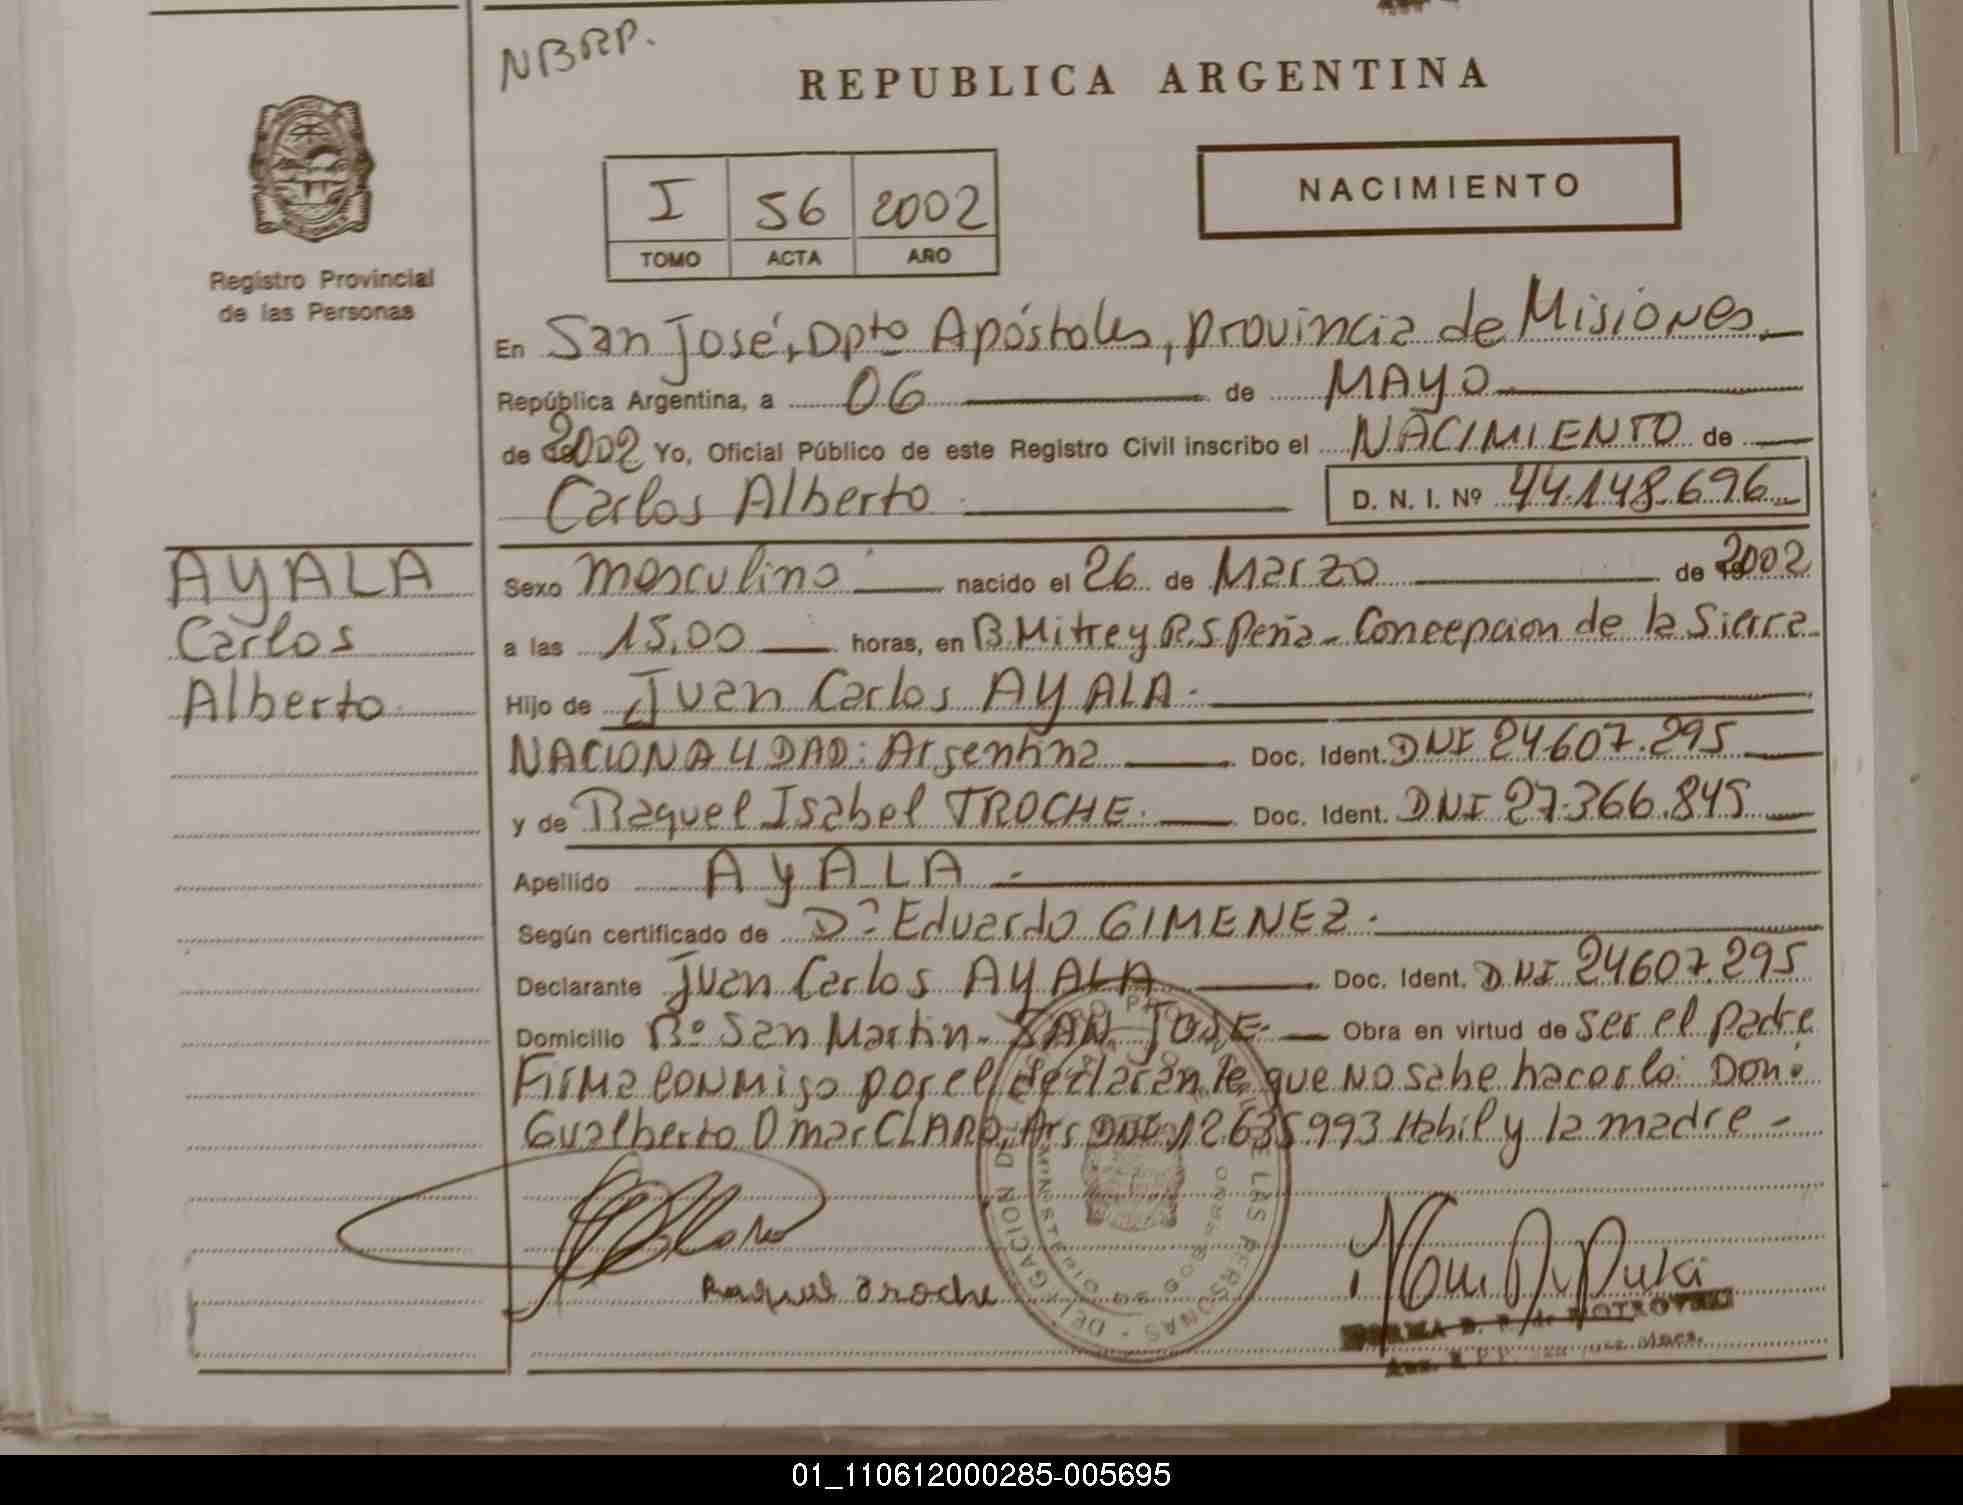 NBRP.
REPUBLICA ARGENTINA
I 56 2002
TOMO ACTA AÑO
NACIMIENTO
Registro Provincial
de las Personas
En San José, Dpto Apóstoles, provincia de Misiones
República Argentina, a 06 de MAYO
de 2002 Yo, Oficial Público de este Registro Civil inscribo el NACIMIENTO de
Carlos Alberto D. N. I. Nº 44.148.696
AYALA
Carlos
Alberto
Sexo masculino nacido el 26 de Marzo de 2002
a las 15,00 horas, en B. Mitre y R. S. Peña - Concepcion de la Sierra
Hijo de Juan Carlos AYALA.
NACIONALIDAD: Argentina Doc. Ident. DNI 24.607.295
y de Raquel Isabel TROCHE. Doc. Ident. DNI 27.366.845
Apellido AYALA.-
Según certificado de Dr Eduardo GIMENEZ.
Declarante Juan Carlos AYALA Doc. Ident. DNI 24607.295
Domicilio Bº San Martin - SAN JOSE - Obra en virtud de ser el padre
Firma conmigo por el declarante que no sabe hacerlo: Don:
Gualberto Omar CLARO, Arg DNI 12635.993 Habil y la madre -
Raquel Troche
DE LAS PERSONAS - DELEGACION
MINISTERIO DE GOBIERNO
01_110612000285-005695